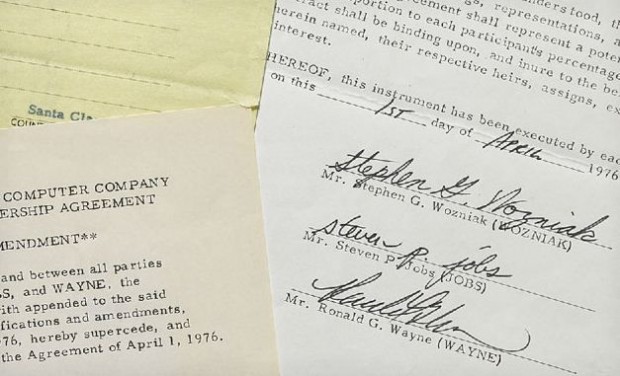 Santa Cla
COMPUTER COMPANY
ERSHIP AGREEMENT
MENDMENT**
and between all parties
S, and WAYNE, the
ith appended to the said
ifications and amendments,
76, hereby supercede, and
the Agreement of April 1, 1976.
representations, a
eement shall represent a poten
oportion to each participant's percentage
ract shall be binding upon, and inure to the be
herein named, their respective heirs, assigns, ex
interest.
HEREOF, this instrument has been executed by eac
on this 1ST day of APRIL 1976
Stephen G. Wozniak
Mr. Stephen G. Wozniak (WOZNIAK)
steven p. jobs
Mr. Steven P. Jobs (JOBS)
Mr. Ronald G. Wayne (WAYNE)